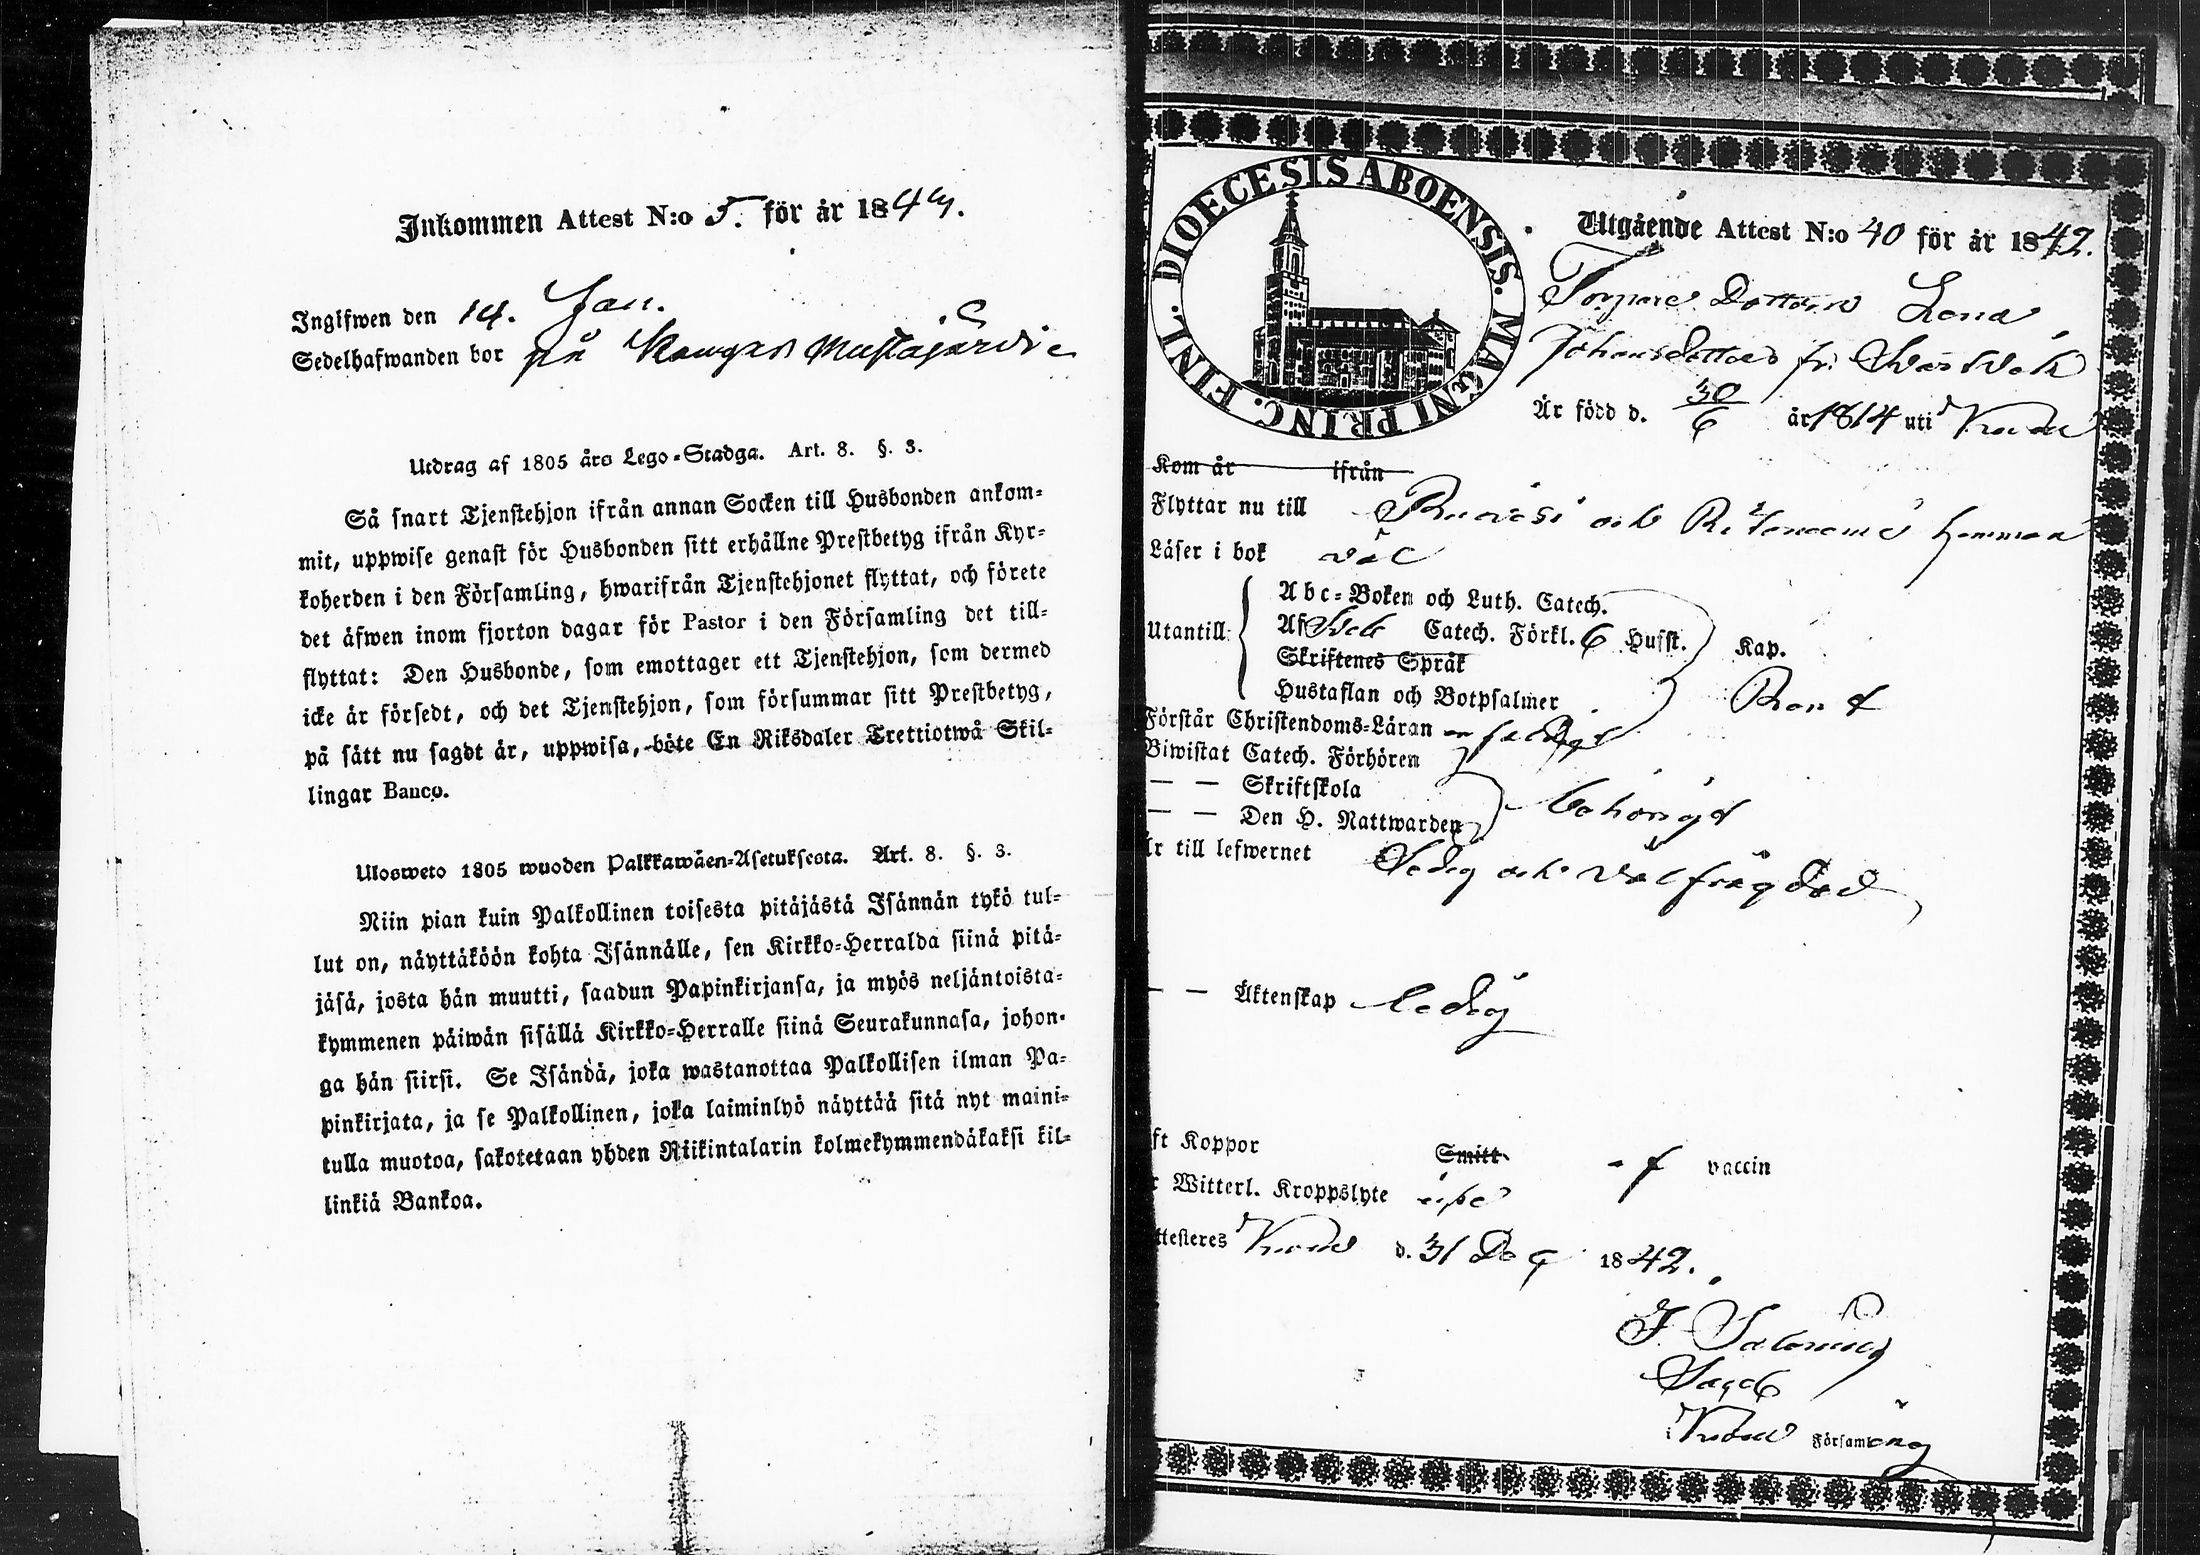 Inkommen Attest N:o 5. för år 184
Ingifwen den 14. Jan.
Sedelhafwanden bor på Mustajärvi
Utdrag af 1805 års Lego-Stadga. Art. 8. §. 3.
Så snart Tjenstehjon ifrån annan Socken till Husbonden ankom-
mit, uppwise genast för Husbonden sitt erhållne Prestbetyg ifrån Kyr-
koherden i den Församling, hwarifrån Tjenstehjonet flyttat, och förete
det äfwen inom fjorton dagar för Pastor i den Församling det till-
flyttat: Den Husbonde, som emottager ett Tjenstehjon, som dermed
icke är försedt, och det Tjenstehjon, som försummar sitt Prestbetyg,
på sätt nu sagdt är, uppwisa, böte En Riksdaler Trettiotwå Skil-
lingar Banco.
Ulosweto 1805 wuoden Palkkawäen-Asetuksesta. Art. 8. §. 3.
Niin pian kuin Palkollinen toisesta pitäjästä Isännän tykö tul-
lut on, näyttäköön kohta Isännälle, sen Kirkko-Herralda siinä pitä-
jäsä, josta hän muutti, saadun Papinkirjansa, ja myös neljäntoista-
kymmenen päiwän sisällä Kirkko-Herralle siinä Seurakunnasa, johon-
ga hän siirsi. Se Isändä, joka wastanottaa Palkollisen ilman Pa-
pinkirjata, ja se Palkollinen, joka laiminlyö näyttää sitä nyt maini-
tulla muotoa, sakotetaan yhden Riikintalarin kolmekymmendäkaksi kil-
linkiä Bankoa.
DIOECESIS ABOENSIS. MAGNI PRINC. FINL.
Utgående Attest N:o 40 för år 1842.
Torpare Dottren Lena
Johansdotter fr.
Är född d. 30/6 år 1814 uti
Kom år ifrån
Flyttar nu till Ruovesi och hemman
Läser i bok väl
Utantill:
Abc-Boken och Luth. Catech.
Af Catech. Förkl. 6 Husst. Kap.
Skriftenes Språk
Hustaflan och Botpsalmer
Förstår Christendoms-Läran
Biwistat Catech. Förhören
— — Skriftskola
— — Den H. Nattwarden behörigt
Är till lefwernet Sedig och välfrägdad
— — Äktenskap Ledig
ft Koppor Smitt vaccin
r Witterl. Kroppslyte
ttesteres d. 31 Dec 1842.
i Församling